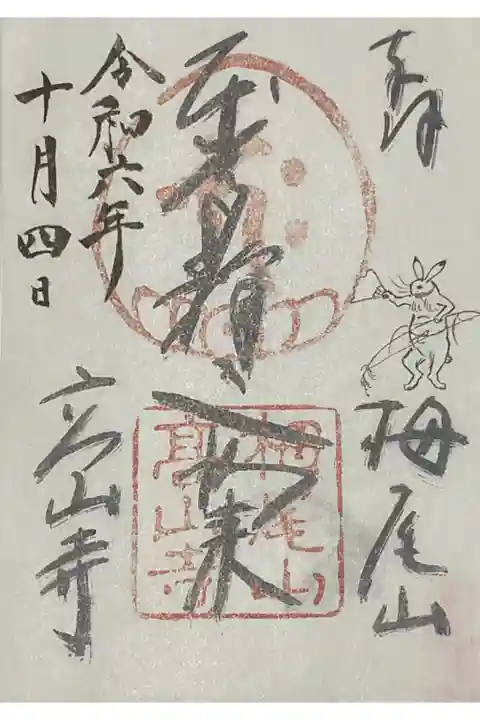 奉拝
栂尾山
栂尾山
高山寺
令和六年
十月四日
高山寺